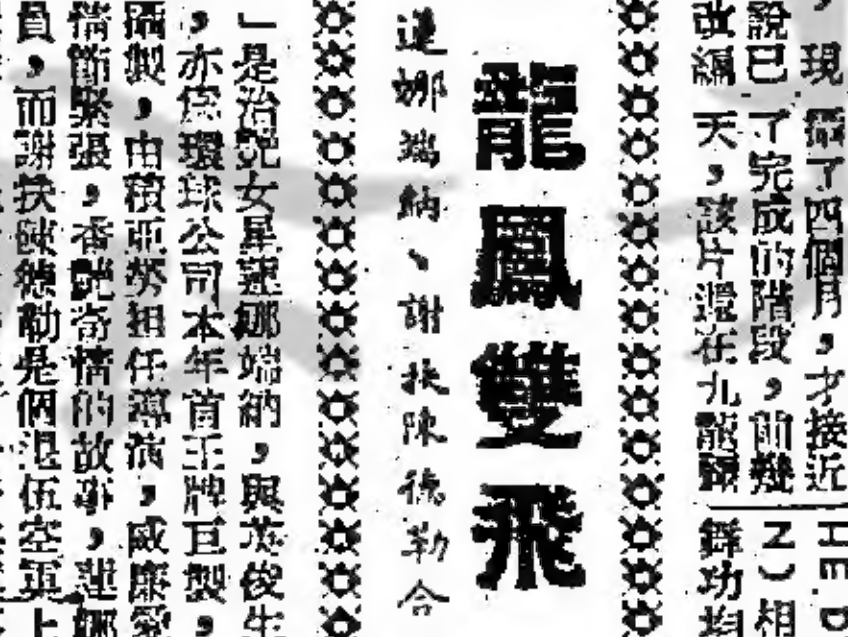 ，現
攝了四個月，才接近
HE D
說已
了完成的階段，前幾
N）相
改編
天，該片還在九龍
龍鳳雙飛
蓮娜端納、謝扶陳德勒合
」是冶艷女星蓮娜端納，與英俊生
，亦為環球公司本年首王牌巨製，
攝製，由積亞勞担任導演，威廉愛
情節緊張，香艷奇情的故事，蓮娜
員，而謝扶陳德勒是個退伍空軍上